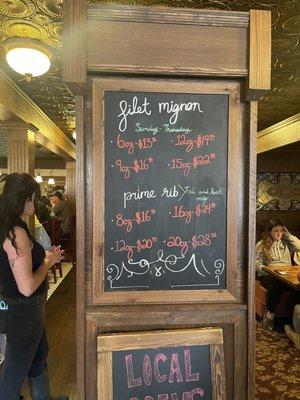 filet mignon
Sunday-Thursday
· 6oz-$13 · 12oz-$19
· 9oz-$16 · 15oz-$22
prime rib Fri and Sat only
· 8oz-$16 · 16oz-$24
· 12oz-$20 · 20oz-$28
LOCAL